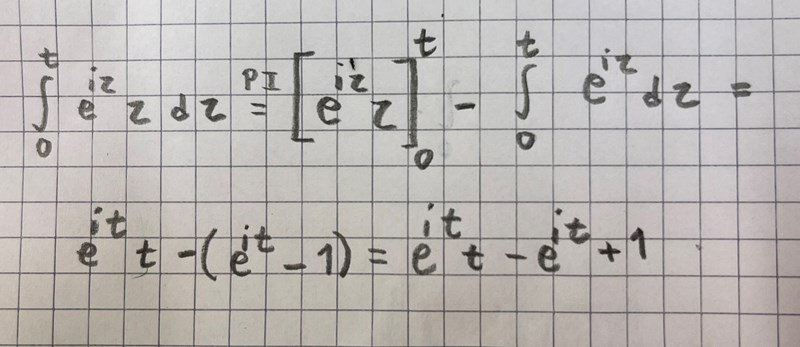 ∫₀ᵗ e^{iz} z dz =^{PI} [e^{iz} z]₀ᵗ - ∫₀ᵗ e^{iz} dz =
e^{it} t - (e^{it} - 1) = e^{it} t - e^{it} + 1